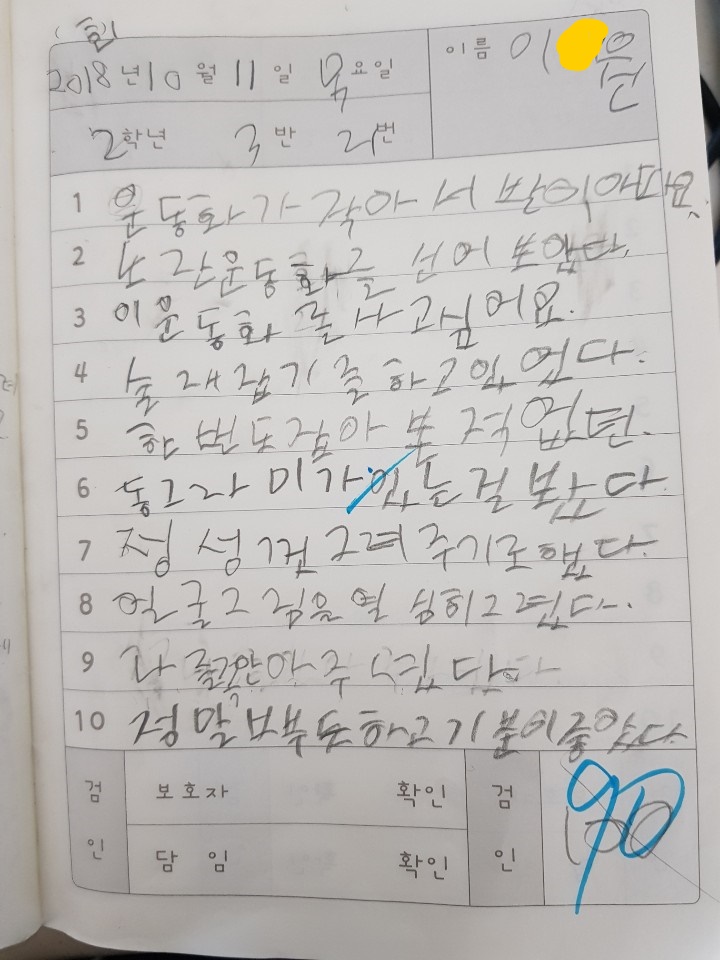 2018년 10월 11일 목요일
이름 이 윤
2학년 3반 21번
1 운동화가 작아서 발이아파요.
2 노란운동화를 신어보았다.
3 이운동화를 사고싶어요.
4 술래잡기를하고있었다.
5 한번도잡아본적없던.
6 동그라미가있는걸봤다.
7 정성껏그려주기로했다.
8 얼굴그림을열심히그렸다.
9 나를꼭안아주셨답다
10 정말뿌듯하고기분이좋았다
검인
보호자 확인
담임 확인
검인
100
90